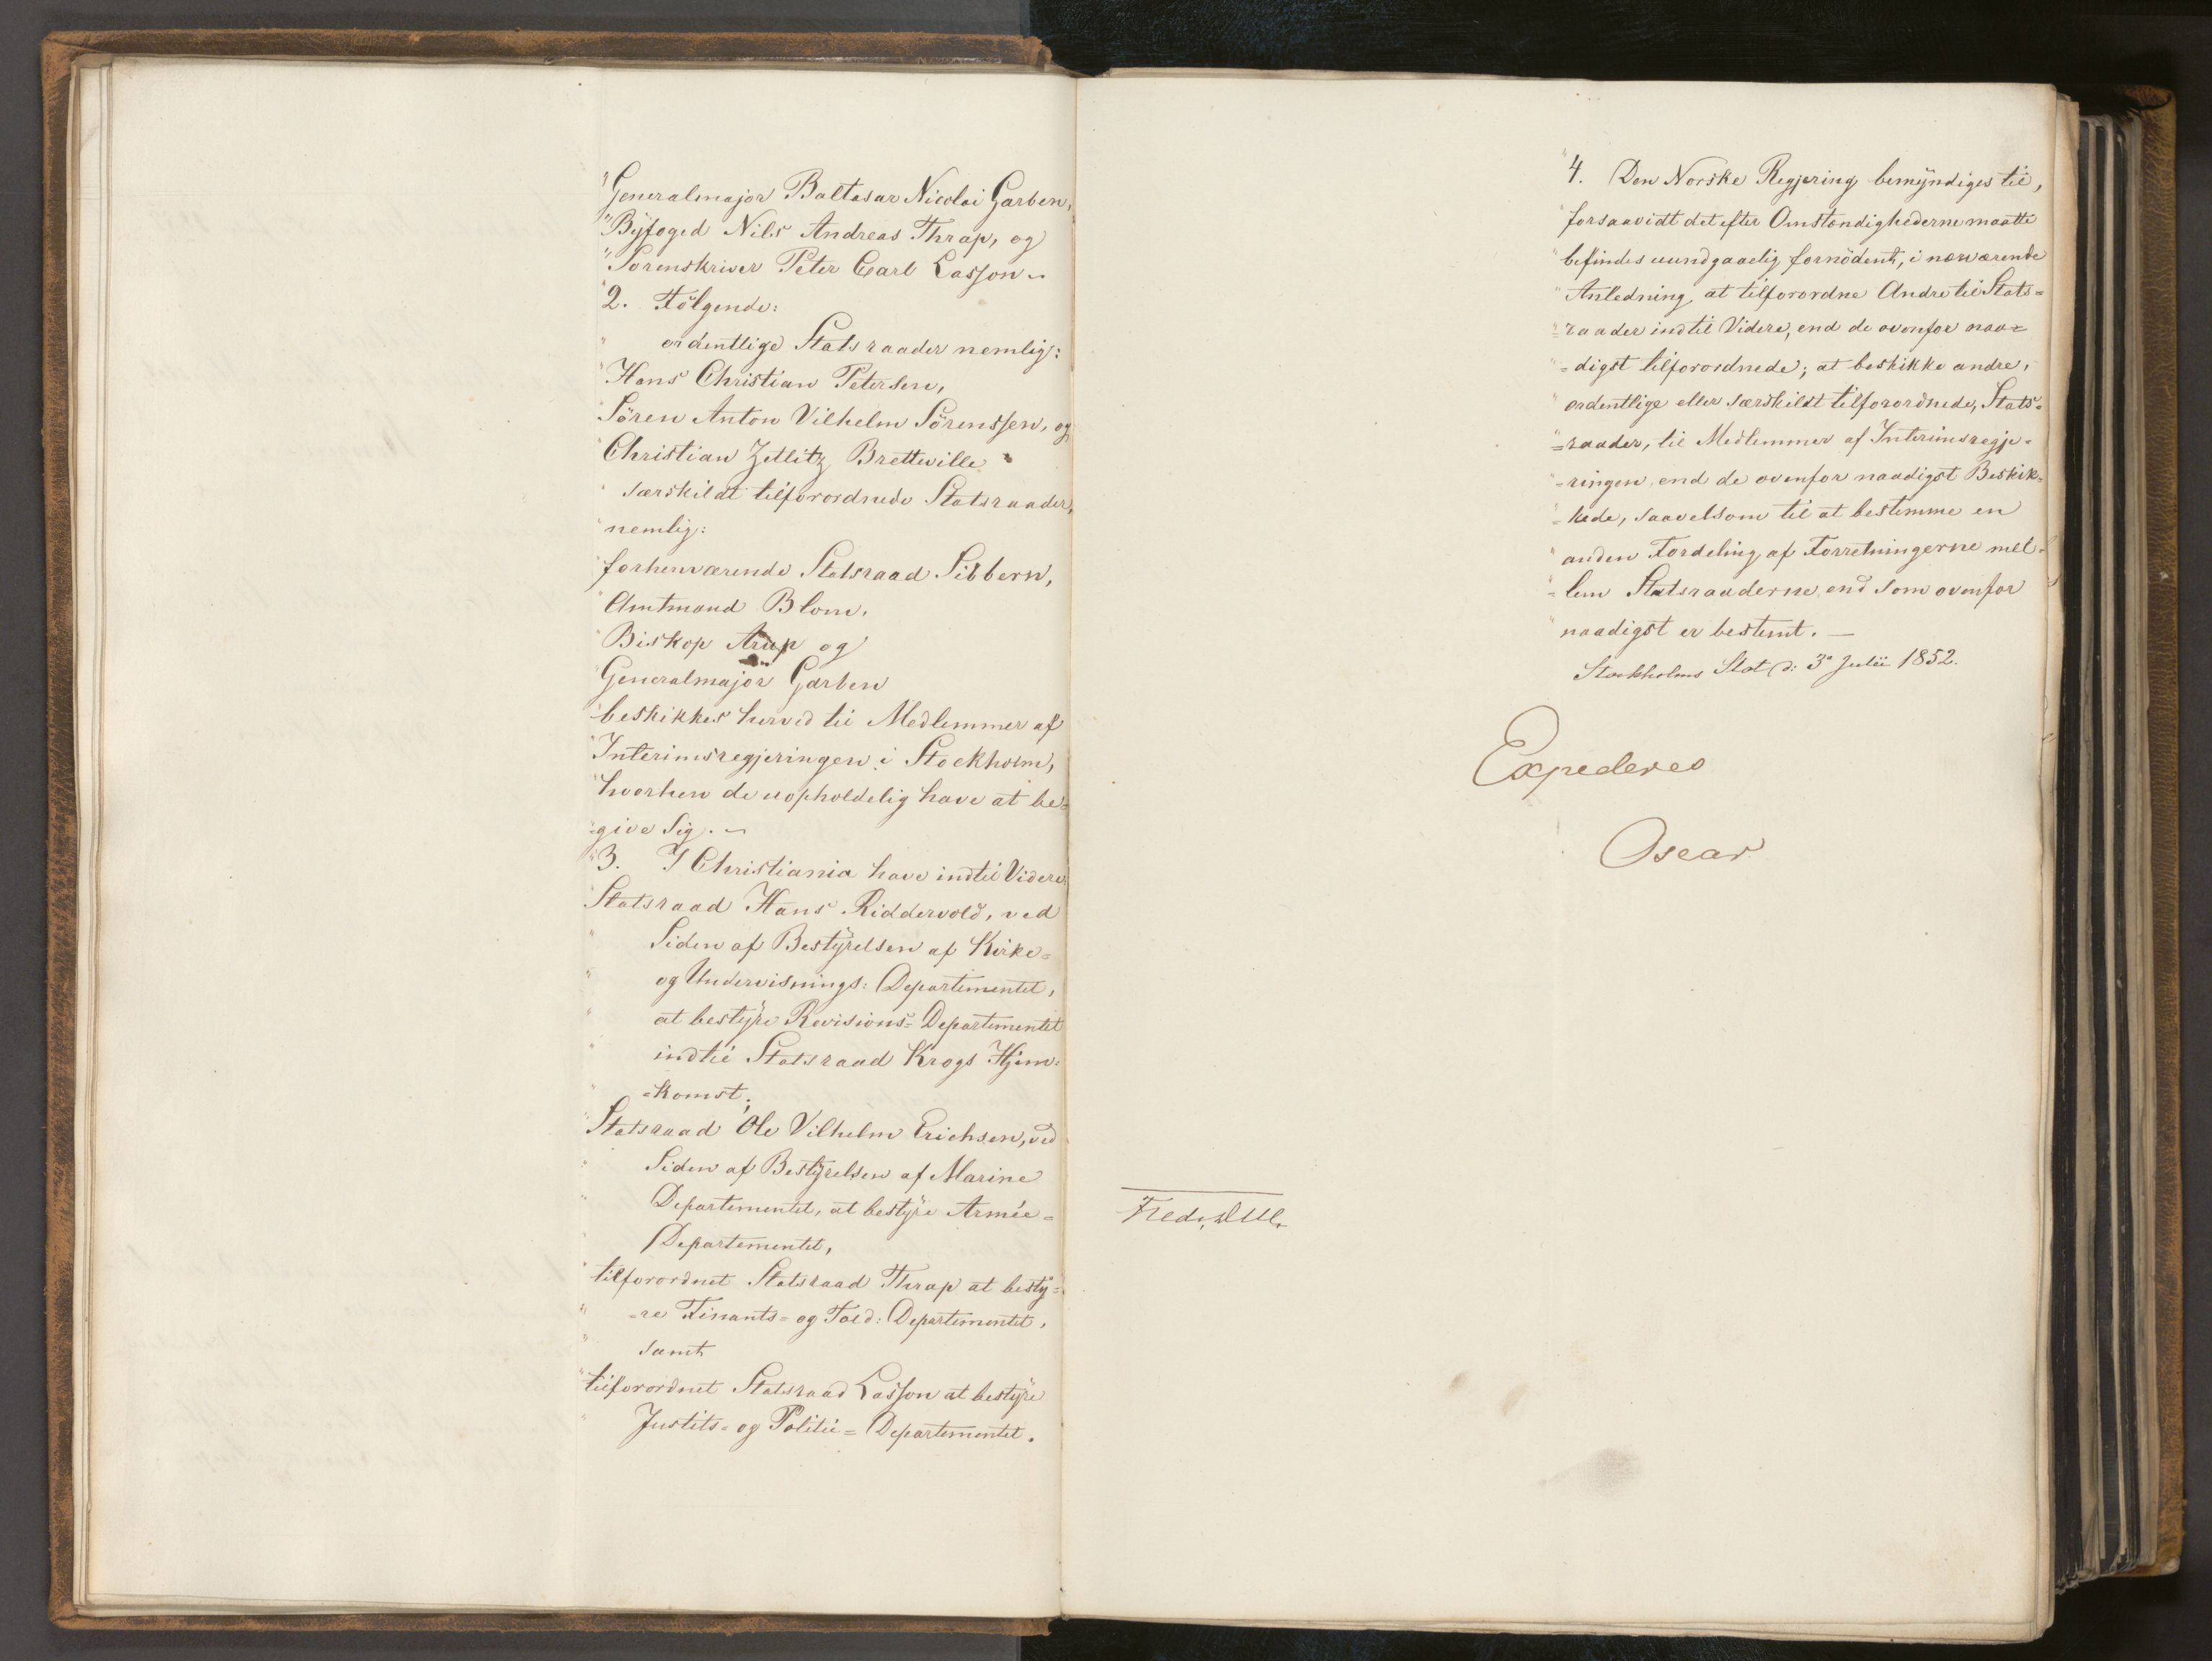 "Generalmajor Baltasar Nicolai Garben,
"Byfoged Nils Andreas Thrap, og
"Sorenskriver Peter Carl Lasson
"2. Følgende:
" ordentlige Statsraader nemlig:
"Hans Christian Petersen,
"Sören Anton Vilhelm Sörenssen, og
"Christian Zetlitz Bretteville
" særskildt tilforordnede Statsraader,
"nemlig:
"forhenværende Statsraad Sibbern,
"Amtmand Blom,
"Biskop Arup og
"Generalmajor Garben
"beskikkes herved til Medlemmer af
"Interimsregjeringen i Stockholm,
"hvorhen de uopholdelig have at be=
"give sig. –
"3. I Christiania have indtil Videre
"Statsraad Hans Riddervold, ved
" Siden af Bestyrelsen af Kirke=
" og Undervisnings: Departementet,
" at bestyre Revisions= Departementet
" indtil Statsraad Krogs Hjem:
" =komst;
"Statsraad Ole Vilhelm Erichsen, ved
" Siden af Bestyrelsen af Marine
" Departementet, at bestyre Armée=
" Departementet,
"tilforordnet Statsraad Thrap at besty=
" =re Finants= og Told: Departementet,
" samt
"tilforordnet Statsraad Lasson at bestyre
" Justits= og Politie= Departementet.
"4. Den Norske Regjering bemyndiges til,
"forsaavidt det efter Omstændighederne maatte
"befindes uundgaaelig fornödent, i nærværende
"Anledning, at tilforordne Andre til Stats=
"=raader indtil Videre, end de ovenfor naa=
"=digst tilforordnede; at beskikke andre,
"ordentlige eller særskildt tilforordnede, Stats=
"=raader, til Medlemmer af Interimsregje=
"=ringen, end de ovenfor naadigst Beskik=
"=kede, saavelsom til at bestemme en
"anden Fordeling af Forretningerne mel=
"=lem Statsraaderne, end som ovenfor
"naadigst er bestemt. –
Stockholms Slot d: 3e Julii 1852.
Expederes
Oscar